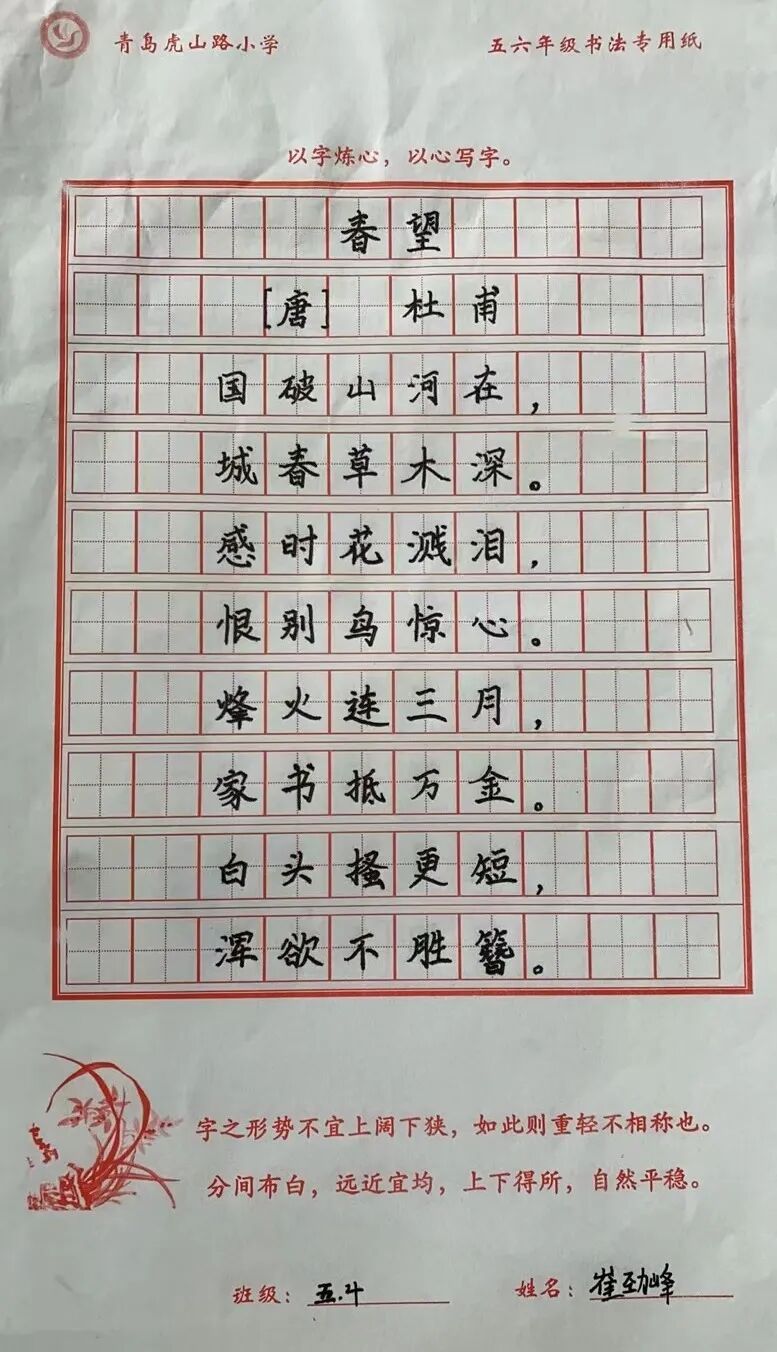 青岛虎山路小学 五六年级书法专用纸
以字炼心，以心写字。
春望
[唐] 杜甫
国破山河在，
城春草木深。
感时花溅泪，
恨别鸟惊心。
烽火连三月，
家书抵万金。
白头搔更短，
浑欲不胜簪。
字之形势不宜上阔下狭，如此则重轻不相称也。
分间布白，远近宜均，上下得所，自然平稳。
班级：五.4 姓名：崔劲峰